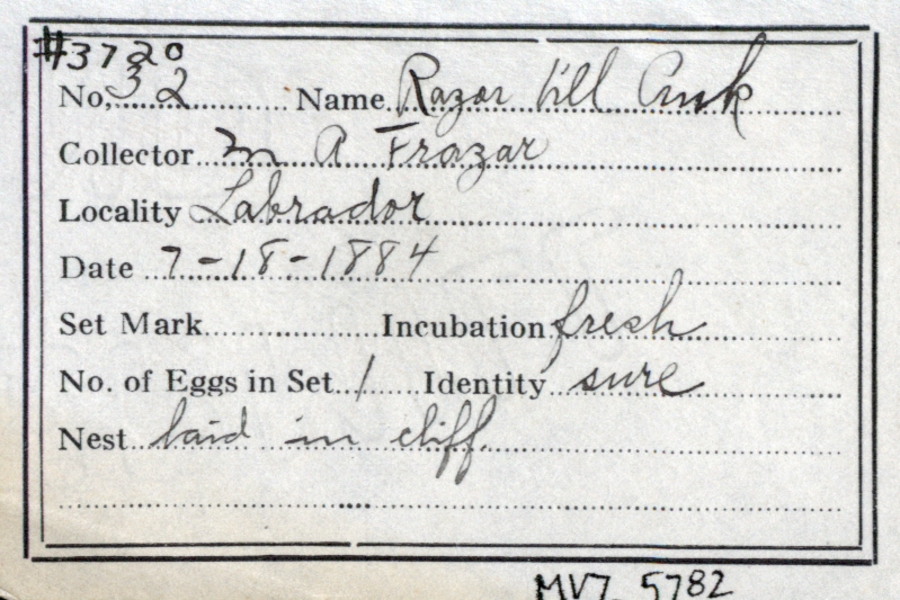 #3720
No. 32 Name Razor bill Auk
Collector M A Frazar
Locality Labrador
Date 7-18-1884
Set Mark Incubation fresh
No. of Eggs in Set 1 Identity sure
Nest laid in cliff.
MVZ 5782